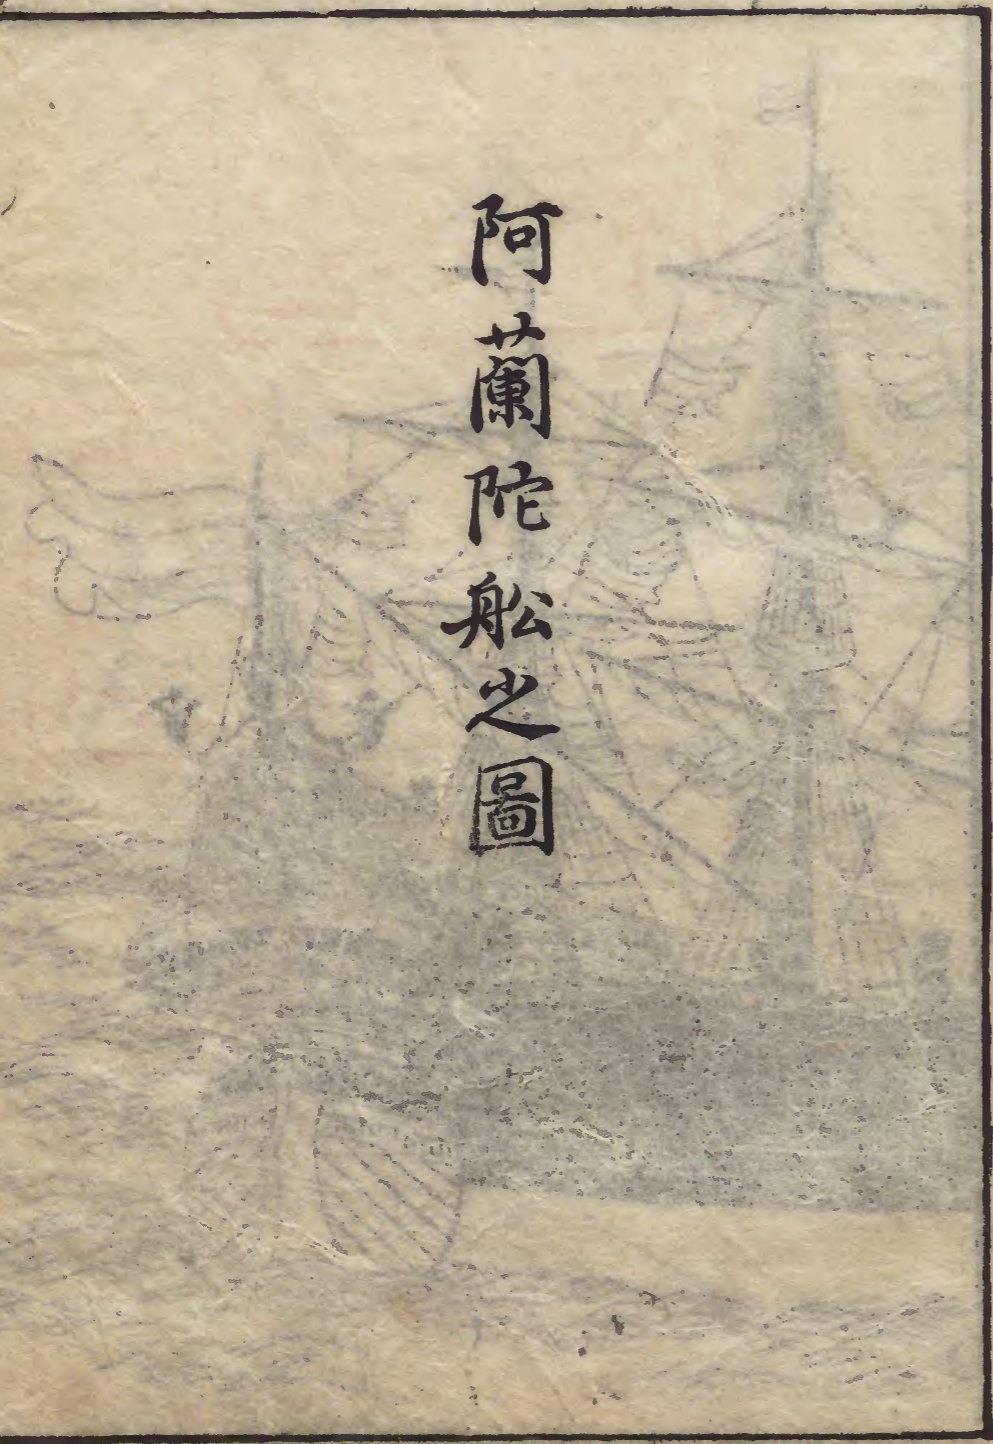 阿蘭陀舩之圖